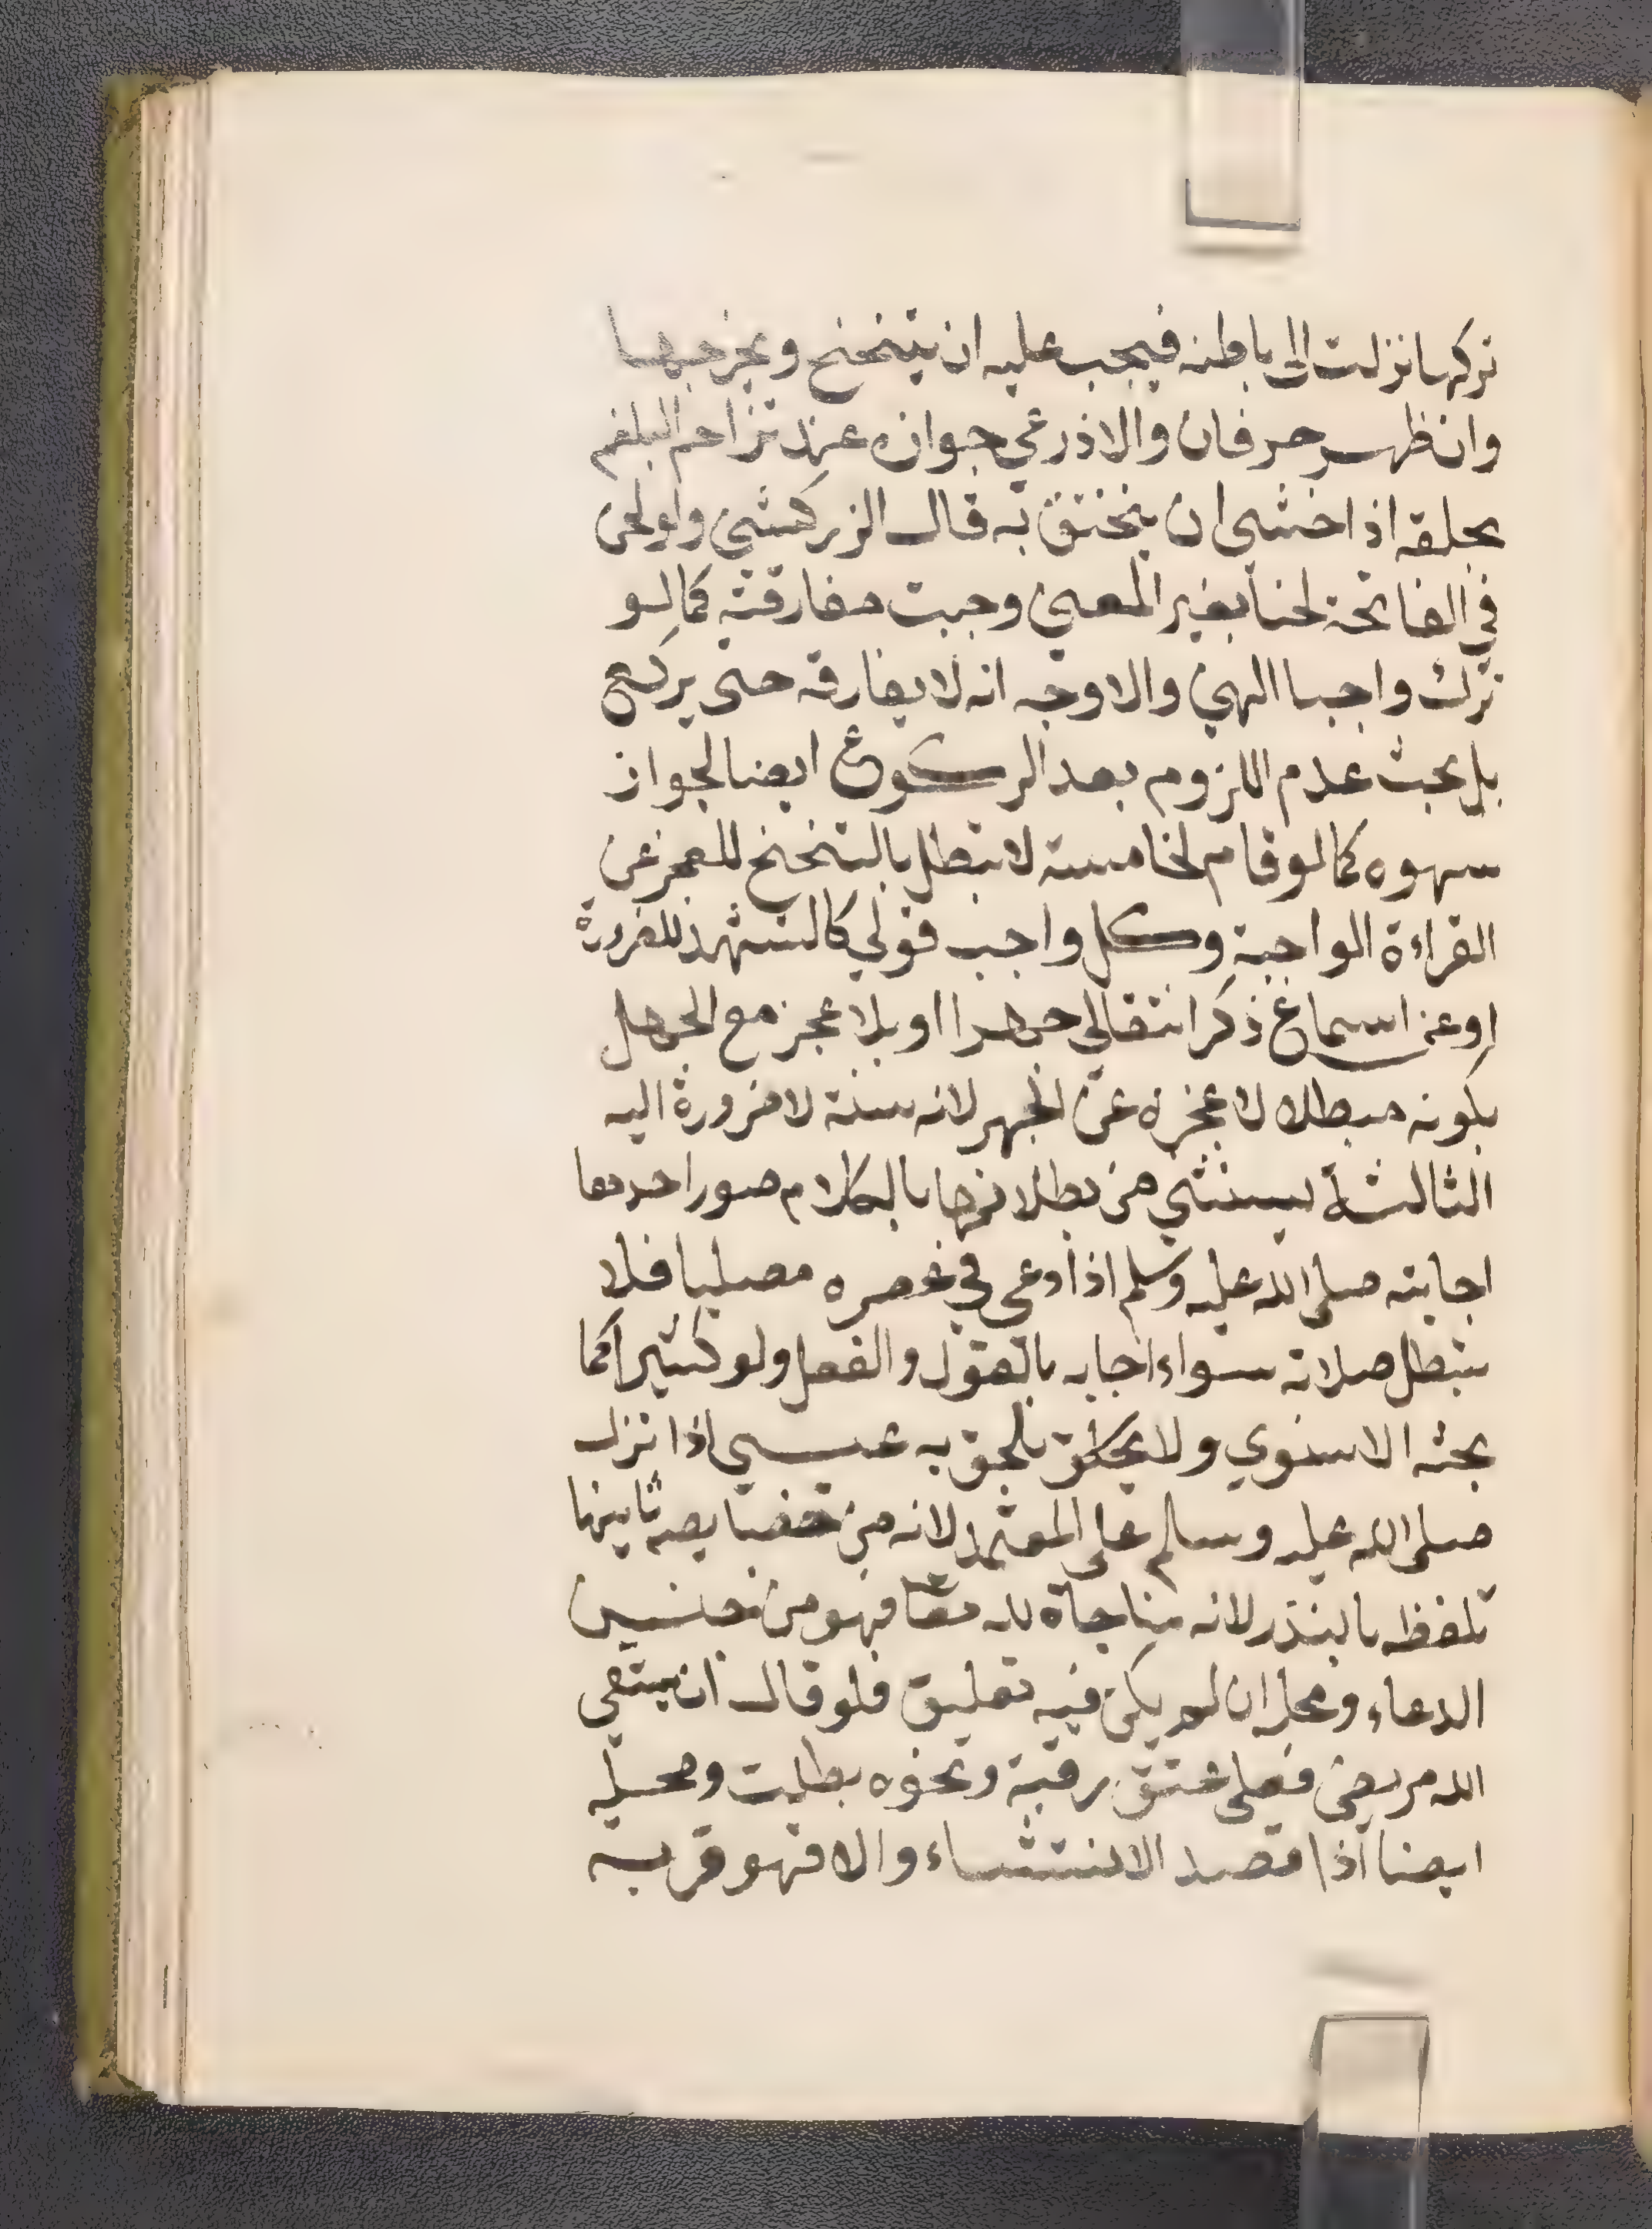 تركها نزلت الى باطنه فيجب عليه ان يتنخنح ويخرجها
وان ظهر حرفان والاذرعي جوازه عند تزاحم البلغم
بحلقه اذا خشي ان ينخنق به قال الزركشي ولو لحن
في الفاتحة لحنا يغير المعنى وجبت مفارقته كما لو
ترك واجبا انتهى والاوجه انه لا يفارقه حتى يركع
بل بحث عدم اللزوم بعد الركوع ايضا لجواز
سهوه كما لو قام لخامسة لا تبطل بالتنحنح للعجز عن
القراءة الواجبة وكل واجب قولي كالتشهد للضرورة
او عن اسماع ذكر انتقالي جهرا او بلا عجز مع الجهل
بكونه مبطلا لا عجزه عن الجهر لانه سنة لا ضرورة اليه
الثالثة يستثنى من بطلانها بالكلام صور احدها
اجابته صلى الله عليه وسلم اذا دعى في عصره مصليا فلا
تبطل صلاته سواء اجابه بالقول والفعل ولو كثيرا كما
بحثه الاسنوي ولا يلحق به عيسى اذا نزل
صلى الله عليه وسلم على المعتمد لانه من خصايصه ثانيها
تلفظه بالنذر لانه مناجاة لله فهو من جنس
الدعاء ومحله ان لم يكن فيه تعليق فلو قال ان شفى
الله مريضى فعلى عتق رقبة ونحوه بطلت ومحله
ايضا اذا قصد الانشاء والا فهو قربه